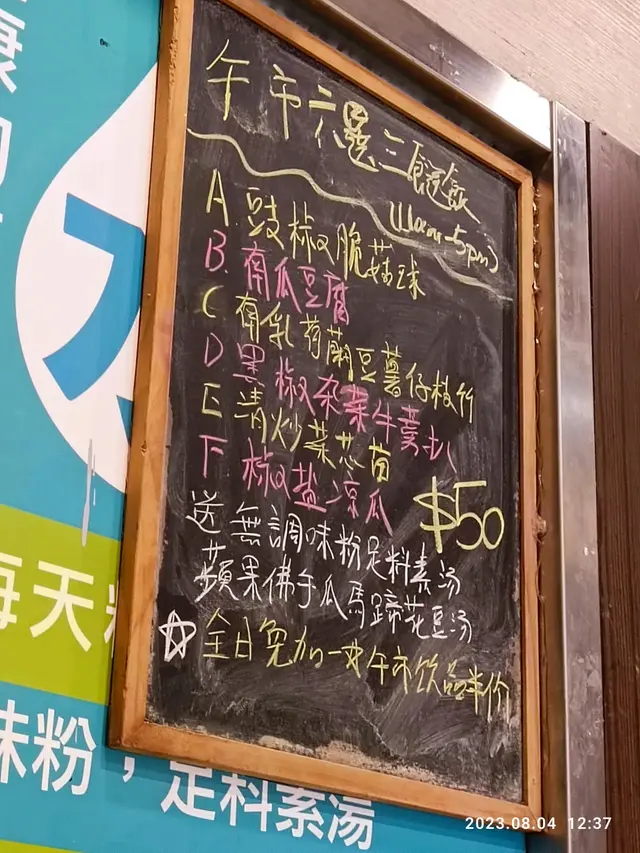 午市六選三餸飯
(11am-5pm)
A. 豉椒脆菇球
B. 南瓜豆腐
C 南乳荷蘭豆薯仔枝竹
D 黑椒杂菜牛蒡扒
E 清炒菜芯苗
F 椒盐凉瓜
$50
送無調味粉足料素汤
蘋果佛手瓜馬蹄花豆汤
☆全日免加一 午市饮品半价
康
每天
味粉，足料素湯
2023.08.04 12:37